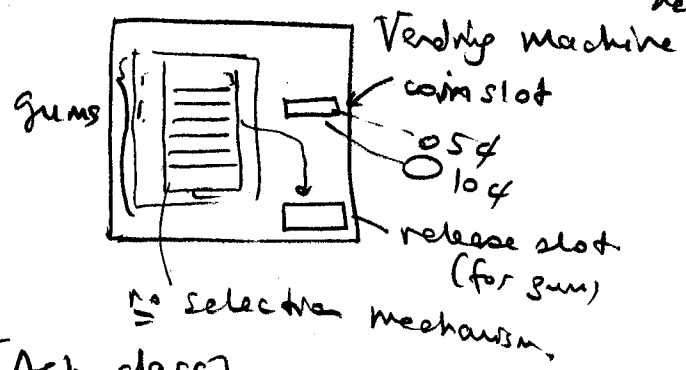 Vending machine
coin slot
gums
5¢
10¢
release slot
(for gum)
no selection mechanism.